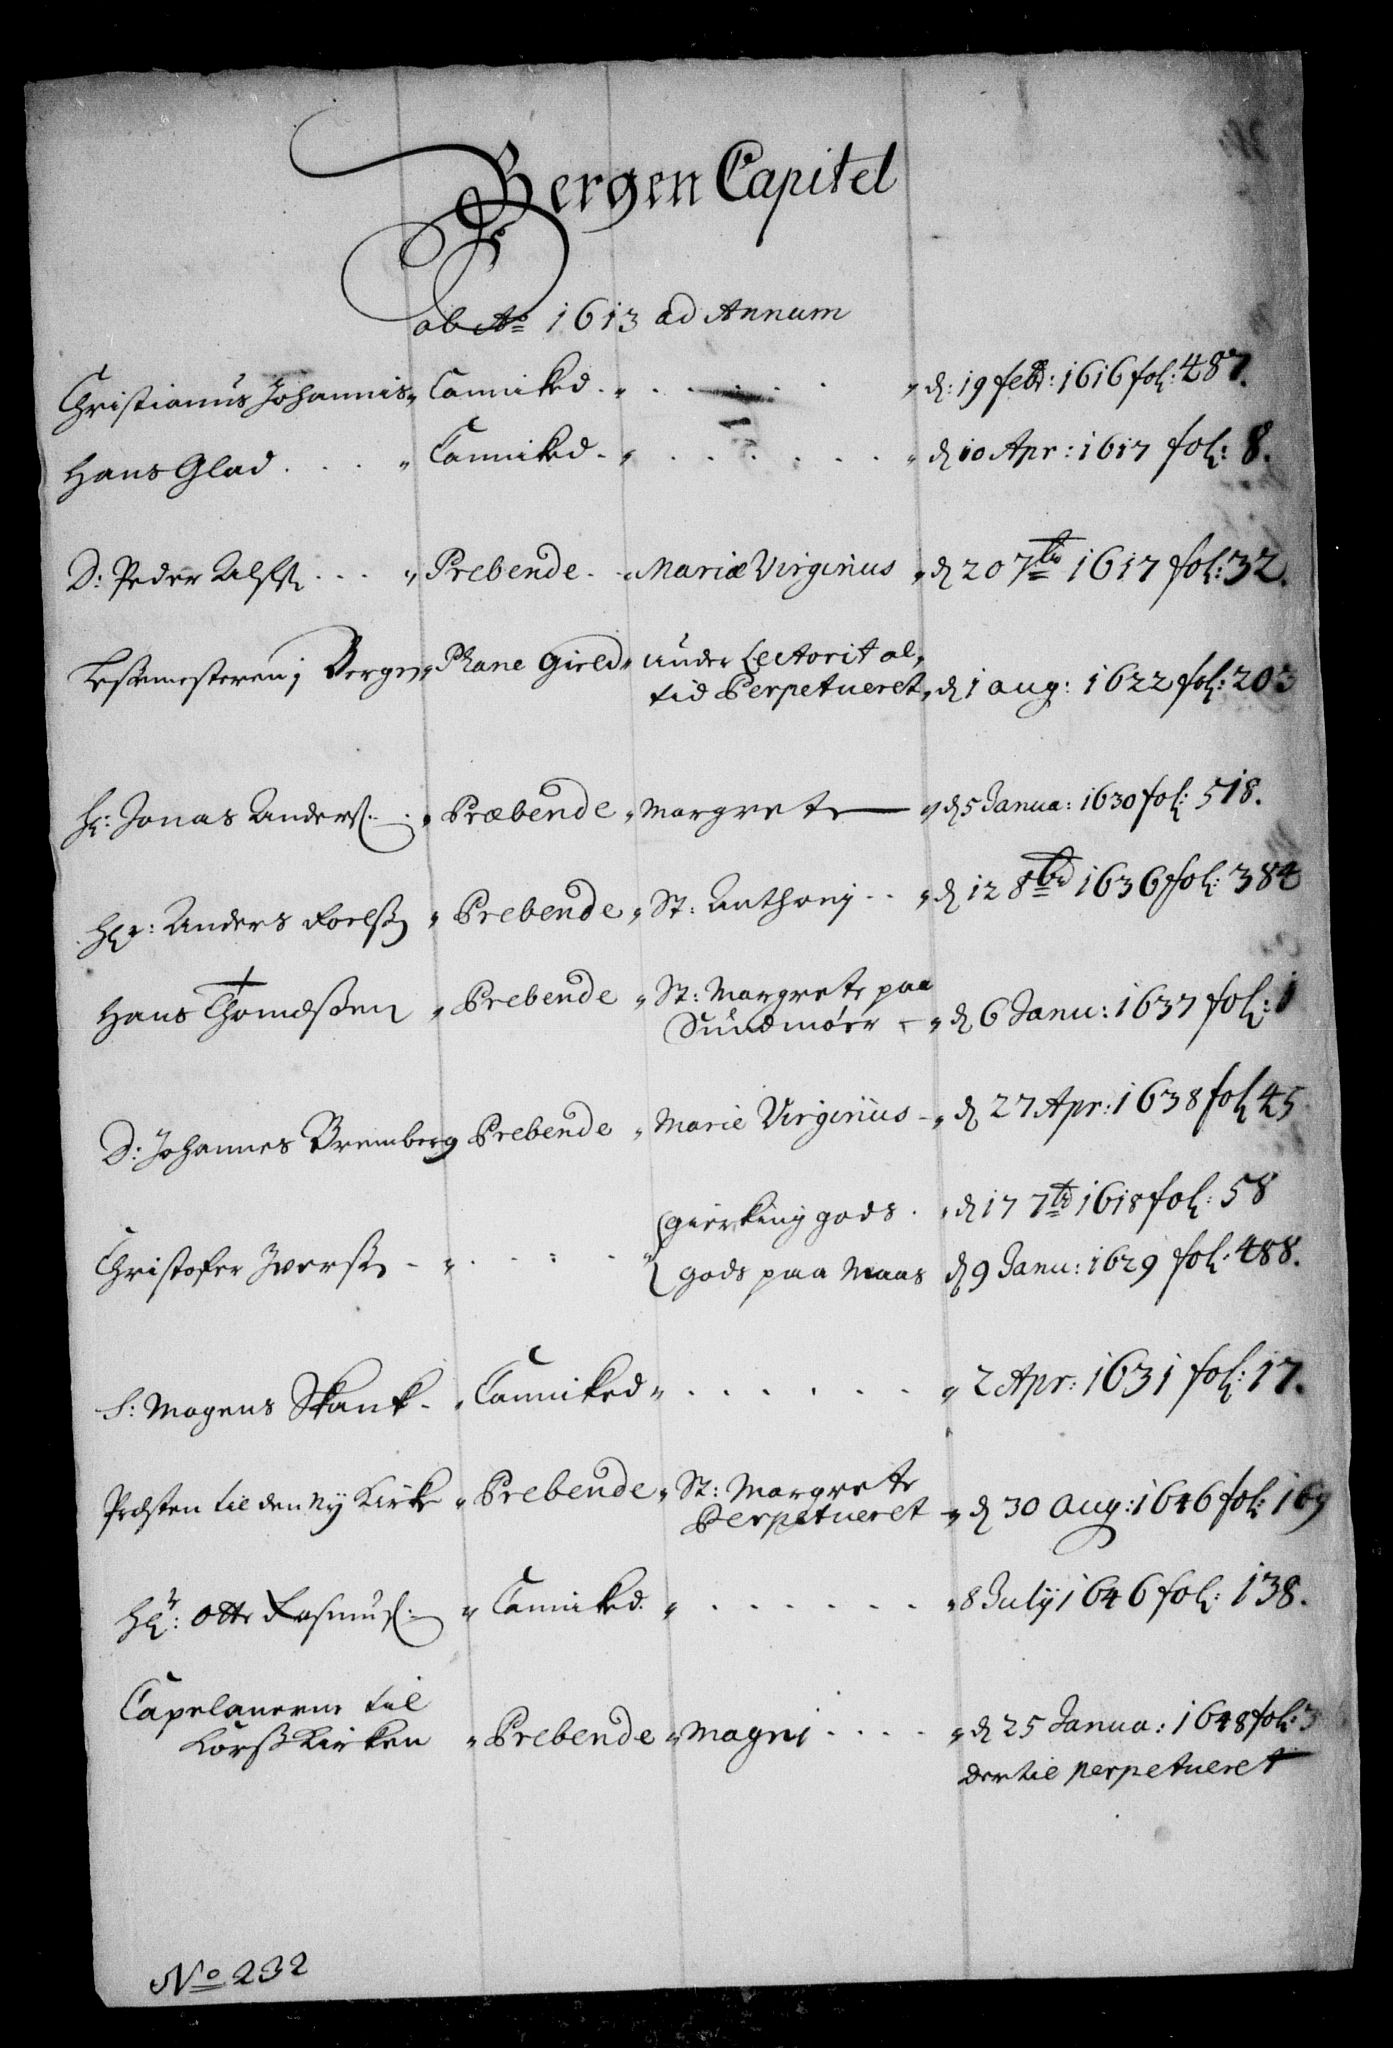 Bergen Capitel
ab Ao 1613 ad Annum
Christianus Johannis „ Canniked . „ . . . . . „ d: 19 febr: 1616 fol: 487.
Hans Glad . . . . „ Canniked . „ . . . . . . „ d 10 Apr: 1617 fol: 8.
D: Peder Alss. . . . „ Prebende . „ Mariæ Virginius „ d 20 7br 1617 fol: 32.
Læssemesteren i Bergen „ Phane Gield „ under Lectorit al„
tid Perpetueret „ d 1 aug: 1622 fol: 203
H: Jonas Anders. . „ Præbende „ Margrete „ d 5 Janua: 1630 fol: 518.
Hr: Anders „ Prebende „ St: Anthonij . . „ d 12 8br 1636 fol: 384
Hans Thomæssen „ Prebende „ St: Margrete paa
Sundmöer „ d 6 Janu: 1637 fol: 1
D: Johannes Bremberg Prebende „ Marie Virginius „ d 27 Apr: 1638 fol 45
gierking gods . „ d 17 7br 1618 fol: 58
Christofer Iverss . „ . : . „ gods paa Maas d 9 Janu: 1629 fol: 488.
S: Mogens Skank . „ Canniked „ . . . . . . „ 2 Apr: 1631 fol: 17.
Præsten til den Ny Kirke „ Prebende „ St: Margrete
Perpetueret „ d 30 Aug: 1646 fol: 169
Hr: Otte Rasmus. „ Canniked „ . . . . . . „ 8 July 1646 fol: 138.
Capelanerne til
Korss Kirken „ Prebende „ Magni . . . . „ d 25 Janua: 1648 fol: 3
Dertil perpetueret
No 232